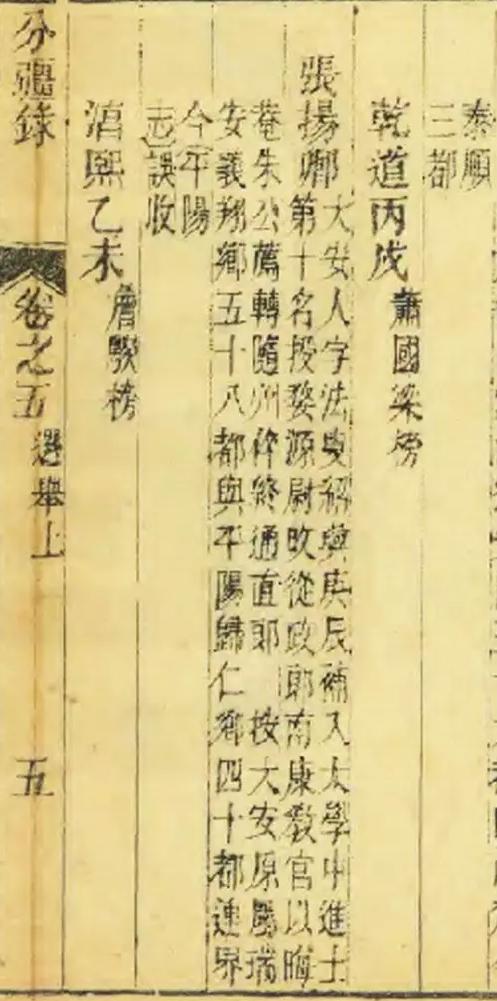 泰順
三都
乾道丙戌 蕭國梁榜
張揚卿 大安人字法叟紹興庚辰補入太學中進士
第十名授婺源尉改從政郎南康教官以晦
菴朱公薦轉隨州倅終通直郎 按大安原屬瑞
安義翔鄉五十八都與平陽歸仁鄉四十都連界
今平陽
志誤收
淳熙乙未 詹騤榜
分疆錄 卷之五 選舉上 五